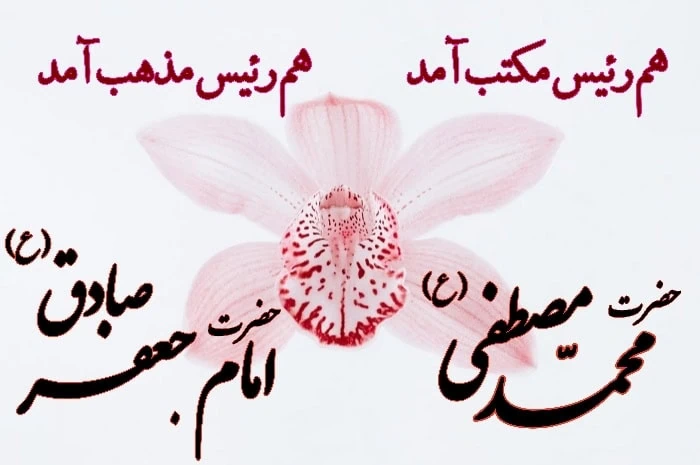 هم رئیس مکتب آمد
هم رئیس مذهب آمد
حضرت
محمّد مصطفی (ع)
حضرت
امام جعفر صادق (ع)